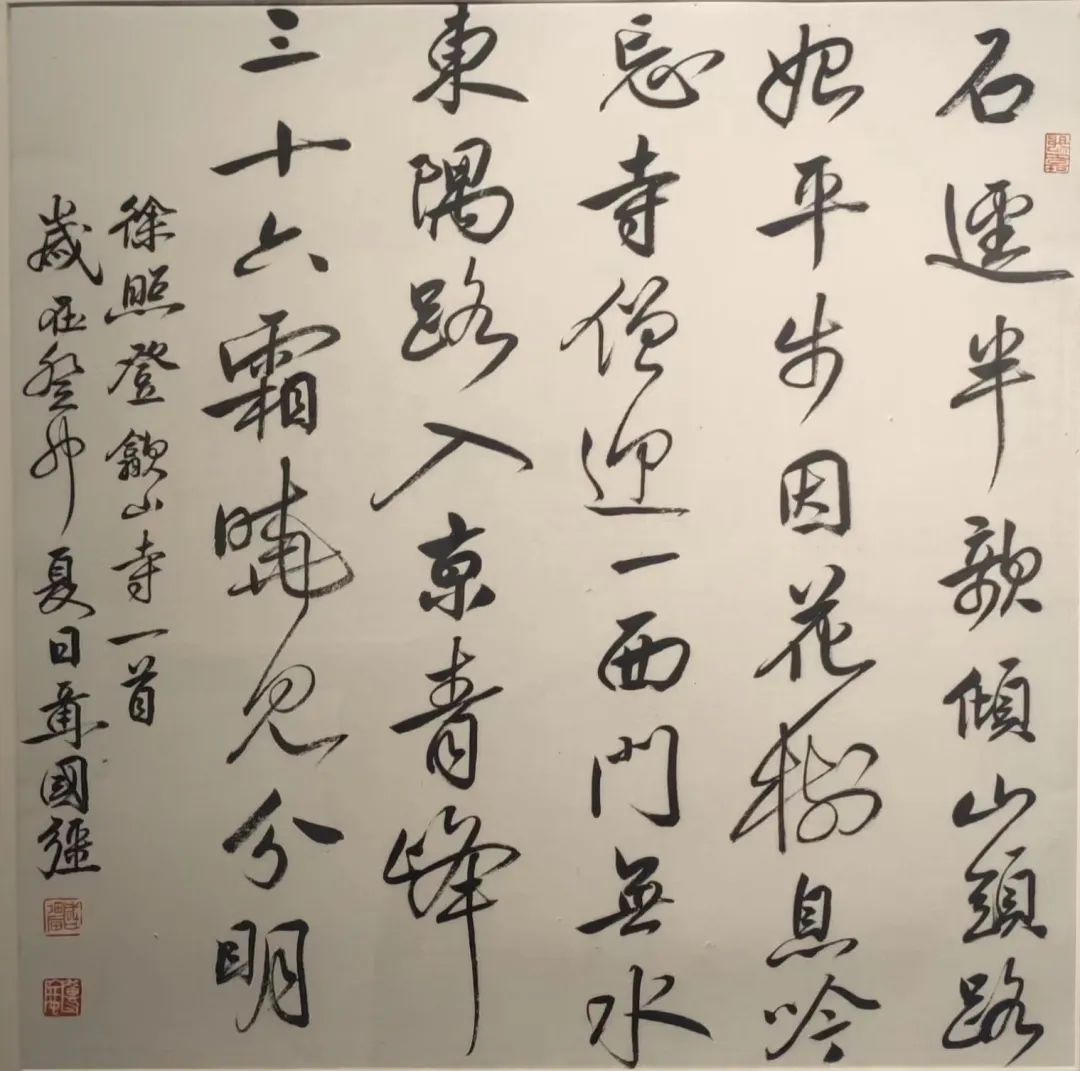 石逕半欹傾山頭路
始平步因花樹息吟
忘寺僧迎一西門無水
東隅路入京青峰
三十六霜曉見分明
徐照登歙山寺一首
歲在癸卯夏日國彊